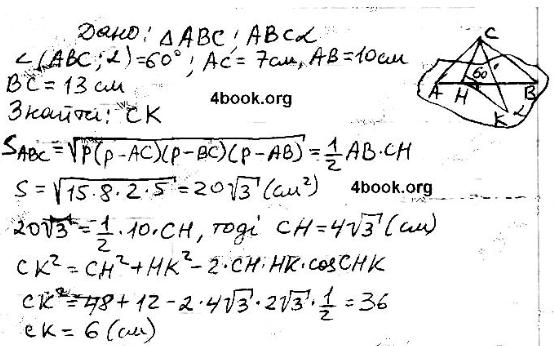 Дано: △ABC; ABC⊂α
∠(ABC; α)=60°; AC = 7см, AB=10см
BC = 13 см
Знайти: CK
4book.org
C
60°
A H B
K α
S_ABC = √(p(p-AC)(p-BC)(p-AB)) = 1/2 AB·CH
S = √(15·8·2·5) = 20√3 (см²)
4book.org
20√3 = 1/2·10·CH, тоді CH = 4√3 (см)
CK² = CH² + HK² - 2·CH·HK·cosCHK
CK² = 48 + 12 - 2·4√3·2√3·1/2 = 36
CK = 6 (см)